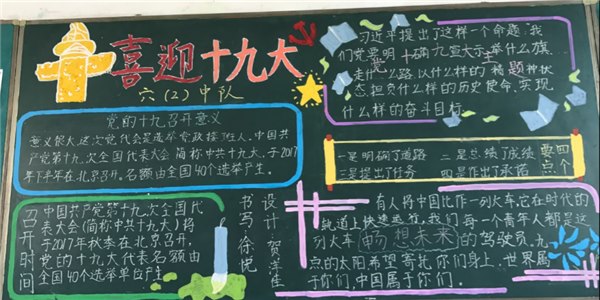 喜迎十九大
六（2）中队
党的十九召开意义
意义很大,这次党代会是选举党政接班人,中国共
产党第十九次全国代表大会(简称中共十九大),于2017
年下半年在北京召开。名额由全国40个选举产生。
召开时间
中国共产党第十九次全国代
表大会(简称中共十九大)将
于2017年秋季在北京召开,
党的十九大代表名额由
全国40个选举单位产生
设计 贺洋佳
书写 徐悦
习近平提出了这样一个命题,我
们党要明确宣示举什么旗
走什么路以什么样的精神状
态,担负什么样的历史使命,实现
什么样的奋斗目标
党的十九大主题
一是明确了道路 二是总绩了成绩
三是提出了任务 四是作出了承诺
四个要点
有人将中国比作一列火车,它在时代的
轨道上快速运行,我们每一个青年人都是这
列火车畅想未来的驾驶员,九
点的太阳希望寄托你们身上,世界属
于你们,中国属于你们。